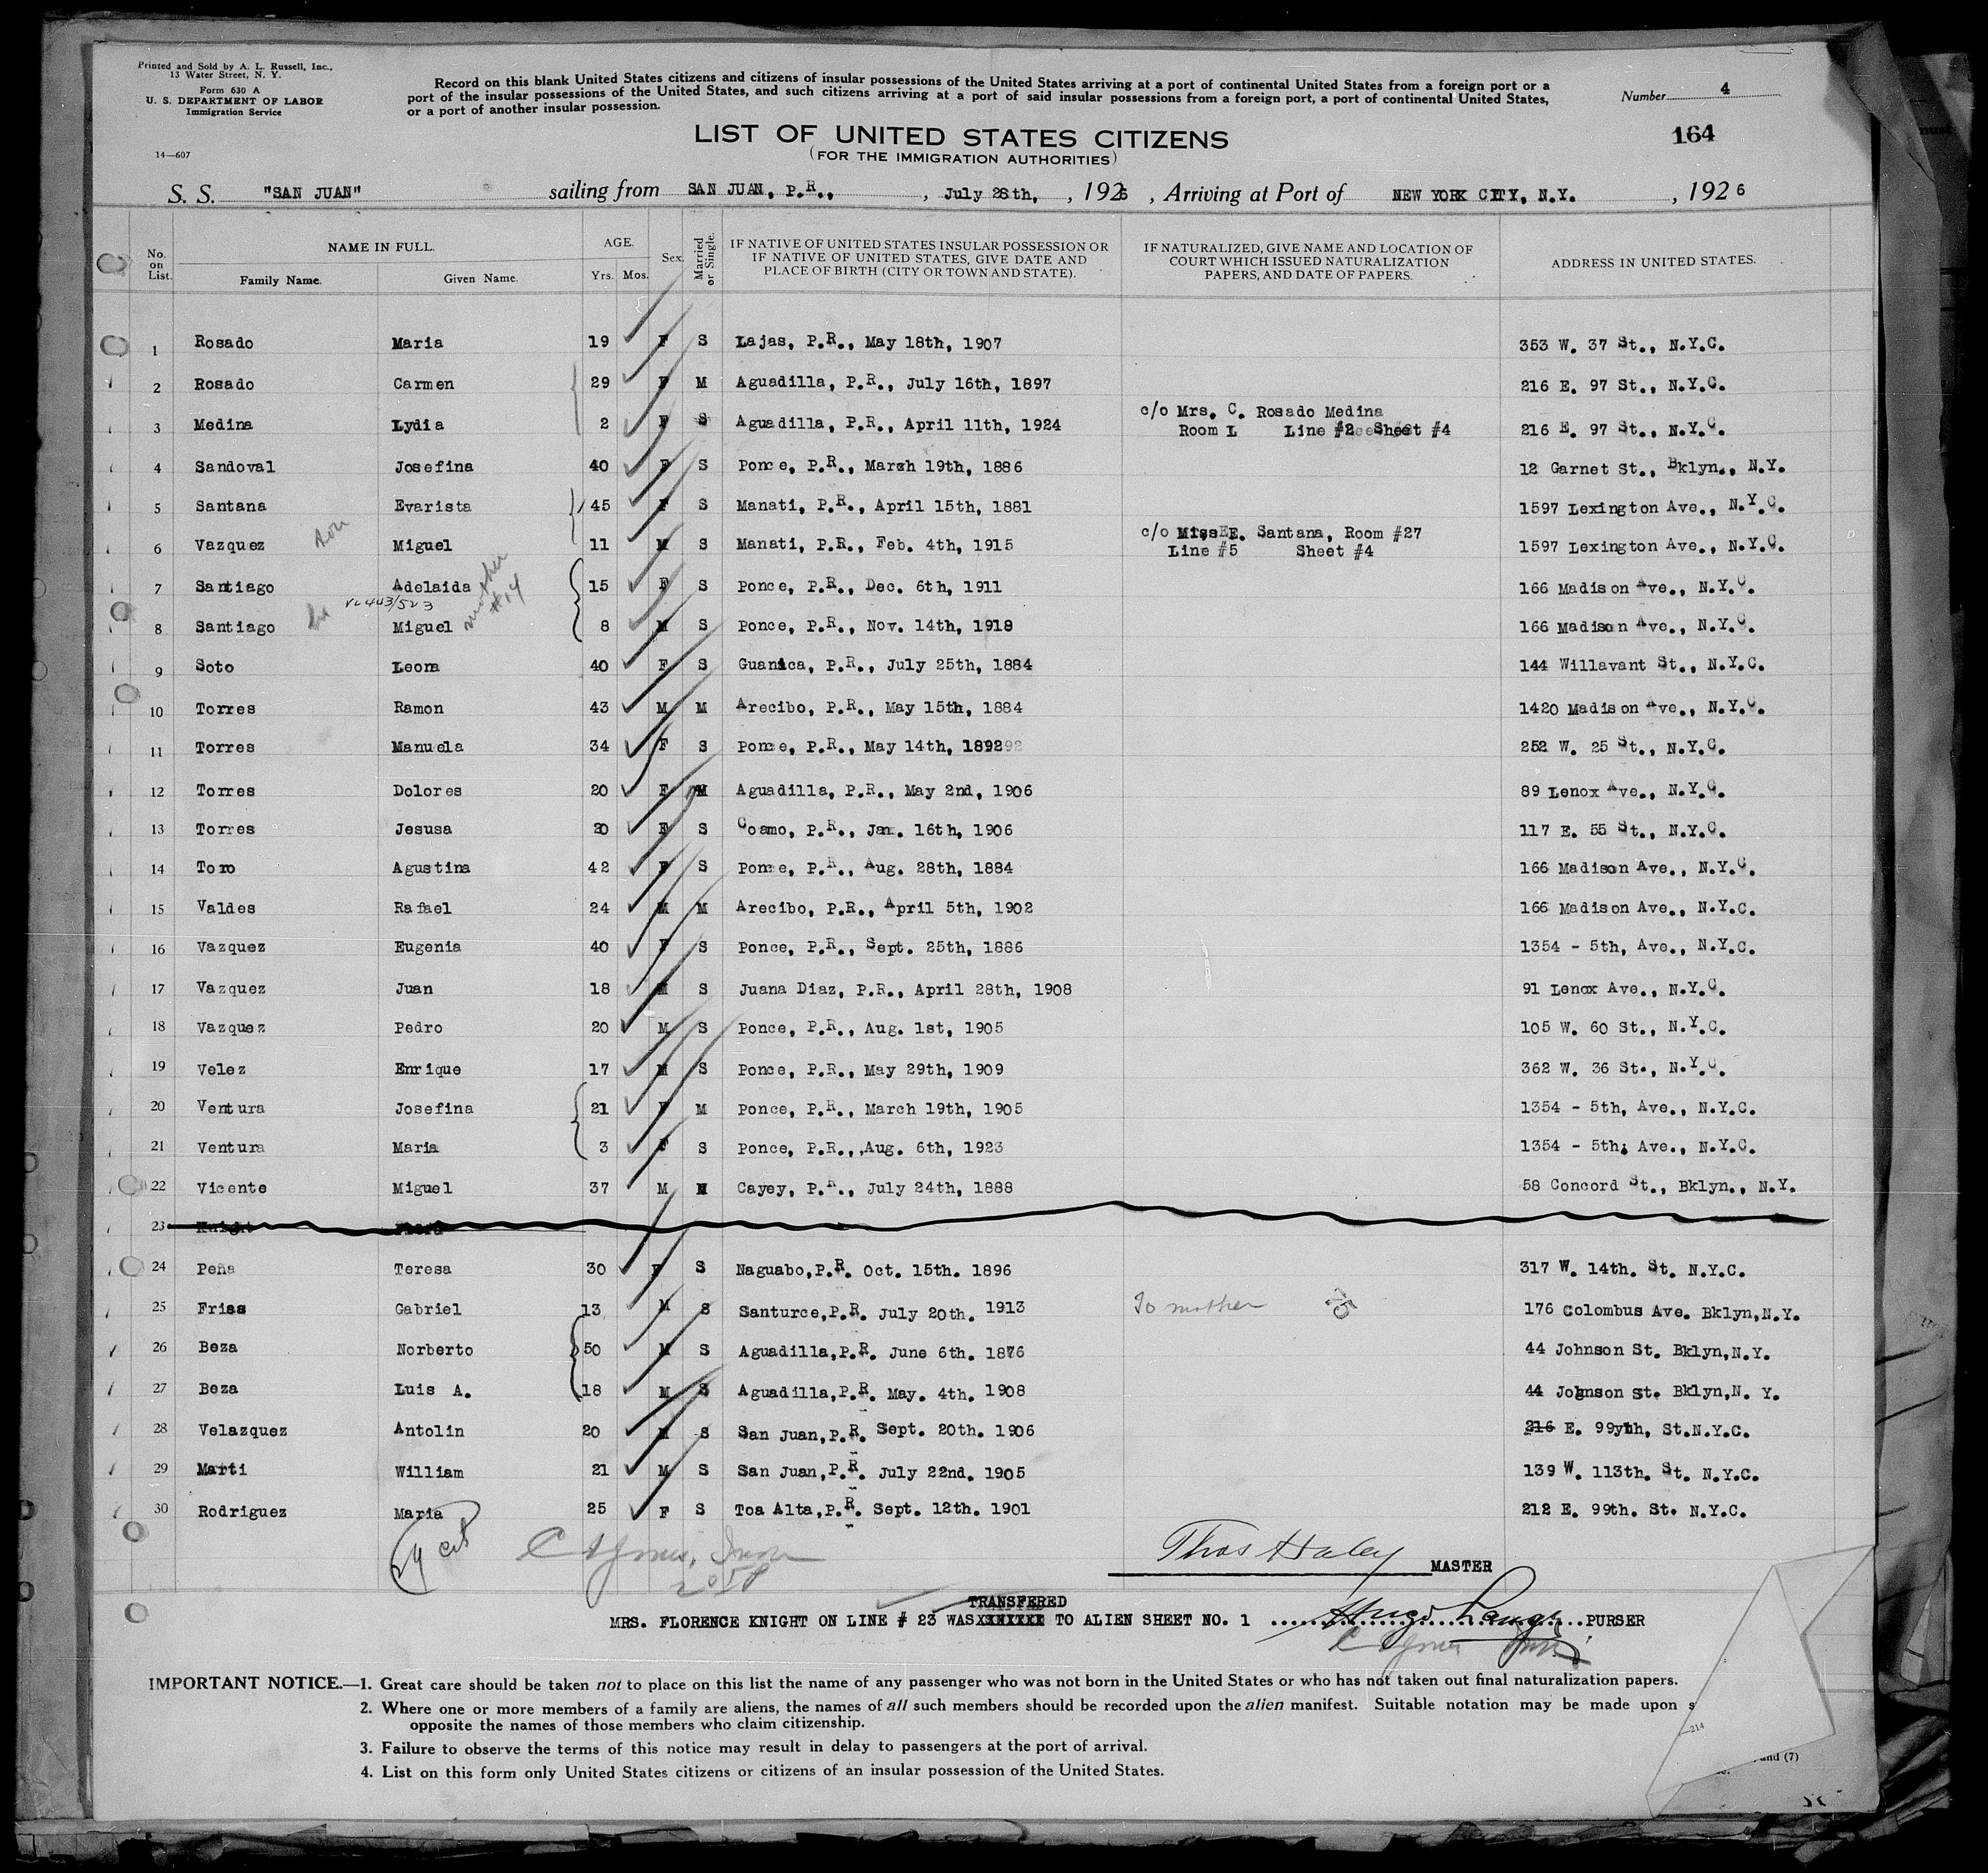 Printed and Sold by A. L. Russell, Inc.,
13 Water Street, N. Y.
Form 630 A
U. S. DEPARTMENT OF LABOR
Immigration Service
14—607
Record on this blank United States citizens and citizens of insular possessions of the United States arriving at a port of continental United States from a foreign port or a
port of the insular possessions of the United States, and such citizens arriving at a port of said insular possessions from a foreign port, a port of continental United States,
or a port of another insular possession.
Number 4
164
LIST OF UNITED STATES CITIZENS
(FOR THE IMMIGRATION AUTHORITIES)
S. S. "SAN JUAN" sailing from SAN JUAN, P.R., , July 28th, , 1926 , Arriving at Port of NEW YORK CITY, N.Y. , 1926
No. on List. NAME IN FULL. Family Name. Given Name. AGE. Yrs. Mos. Sex. Married or Single. IF NATIVE OF UNITED STATES INSULAR POSSESSION OR IF NATIVE OF UNITED STATES, GIVE DATE AND PLACE OF BIRTH (CITY OR TOWN AND STATE). IF NATURALIZED, GIVE NAME AND LOCATION OF COURT WHICH ISSUED NATURALIZATION PAPERS, AND DATE OF PAPERS. ADDRESS IN UNITED STATES.
1 Rosado Maria 19 F S Lajas, P.R., May 18th, 1907 353 W. 37 St., N.Y.C.
2 Rosado Carmen 29 F M Aguadilla, P.R., July 16th, 1897 216 E. 97 St., N.Y.C.
3 Medina Lydia 2 F S Aguadilla, P.R., April 11th, 1924 c/o Mrs. C. Rosado Medina Room L Line #2 Sheet #4 216 E. 97 St., N.Y.C.
4 Sandoval Josefina 40 F S Ponce, P.R., March 19th, 1886 12 Garnet St., Bklyn., N.Y.
5 Santana Evarista 45 F S Manati, P.R., April 15th, 1881 1597 Lexington Ave., N.Y.C.
6 Vazquez son Miguel 11 M S Manati, P.R., Feb. 4th, 1915 c/o Miss E. Santana, Room #27 Line #5 Sheet #4 1597 Lexington Ave., N.Y.C.
7 Santiago Adelaida 15 F S Ponce, P.R., Dec. 6th, 1911 166 Madison Ave., N.Y.C.
mother #14
8 Santiago Miguel 8 M S Ponce, P.R., Nov. 14th, 1918 166 Madison Ave., N.Y.C.
9 Soto Leora 40 F S Guanica, P.R., July 25th, 1884 144 Willavant St., N.Y.C.
10 Torres Ramon 43 M M Arecibo, P.R., May 15th, 1884 1420 Madison Ave., N.Y.C.
11 Torres Manuela 34 F S Ponce, P.R., May 14th, 1892 252 W. 25 St., N.Y.C.
12 Torres Dolores 20 F M Aguadilla, P.R., May 2nd, 1906 89 Lenox Ave., N.Y.C.
13 Torres Jesusa 20 F S Coamo, P.R., Jan. 16th, 1906 117 E. 55 St., N.Y.C.
14 Toro Agustina 42 F S Ponce, P.R., Aug. 28th, 1884 166 Madison Ave., N.Y.C.
15 Valdes Rafael 24 M M Arecibo, P.R., April 5th, 1902 166 Madison Ave., N.Y.C.
16 Vazquez Eugenia 40 F S Ponce, P.R., Sept. 25th, 1886 1354 - 5th, Ave., N.Y.C.
17 Vazquez Juan 18 M S Juana Diaz, P.R., April 28th, 1908 91 Lenox Ave., N.Y.C.
18 Vazquez Pedro 20 M S Ponce, P.R., Aug. 1st, 1905 105 W. 60 St., N.Y.C.
19 Velez Enrique 17 M S Ponce, P.R., May 29th, 1909 362 W. 36 St., N.Y.C.
20 Ventura Josefina 21 F M Ponce, P.R., March 19th, 1905 1354 - 5th, Ave., N.Y.C.
21 Ventura Maria 3 F S Ponce, P.R., Aug. 6th, 1923 1354 - 5th; Ave., N.Y.C.
22 Vicente Miguel 37 M M Cayey, P.R., July 24th, 1888 58 Concord St., Bklyn., N.Y.
23 Knight
24 Peña Teresa 30 F S Naguabo,P.R. Oct. 15th. 1896 317 W. 14th. St. N.Y.C.
25 Frias Gabriel 13 M S Santurce,P.R. July 20th. 1913 To mother 75 176 Colombus Ave. Bklyn,N.Y.
26 Beza Norberto 50 M S Aguadilla,P.R. June 6th. 1876 44 Johnson St. Bklyn,N.Y.
27 Beza Luis A. 18 M S Aguadilla,P.R. May. 4th. 1908 44 Johnson St. Bklyn,N. Y.
28 Velazquez Antolin 20 M S San Juan,P.R. Sept. 20th. 1906 316 E. 99yth, St.N.Y.C.
29 Marti William 21 M S San Juan,P.R. July 22nd. 1905 139 W. 113th. St. N.Y.C.
30 Rodriguez Maria 25 F S Toa Alta,P.R. Sept. 12th. 1901 212 E. 99th. St. N.Y.C.
Thos Haley MASTER
TRANSFERED
MRS. FLORENCE KNIGHT ON LINE # 23 WAS XXXXXXX TO ALIEN SHEET NO. 1 Hugo Lange PURSER
IMPORTANT NOTICE.—1. Great care should be taken not to place on this list the name of any passenger who was not born in the United States or who has not taken out final naturalization papers.
2. Where one or more members of a family are aliens, the names of all such members should be recorded upon the alien manifest. Suitable notation may be made upon s
opposite the names of those members who claim citizenship.
3. Failure to observe the terms of this notice may result in delay to passengers at the port of arrival.
4. List on this form only United States citizens or citizens of an insular possession of the United States.
—214
and (7)